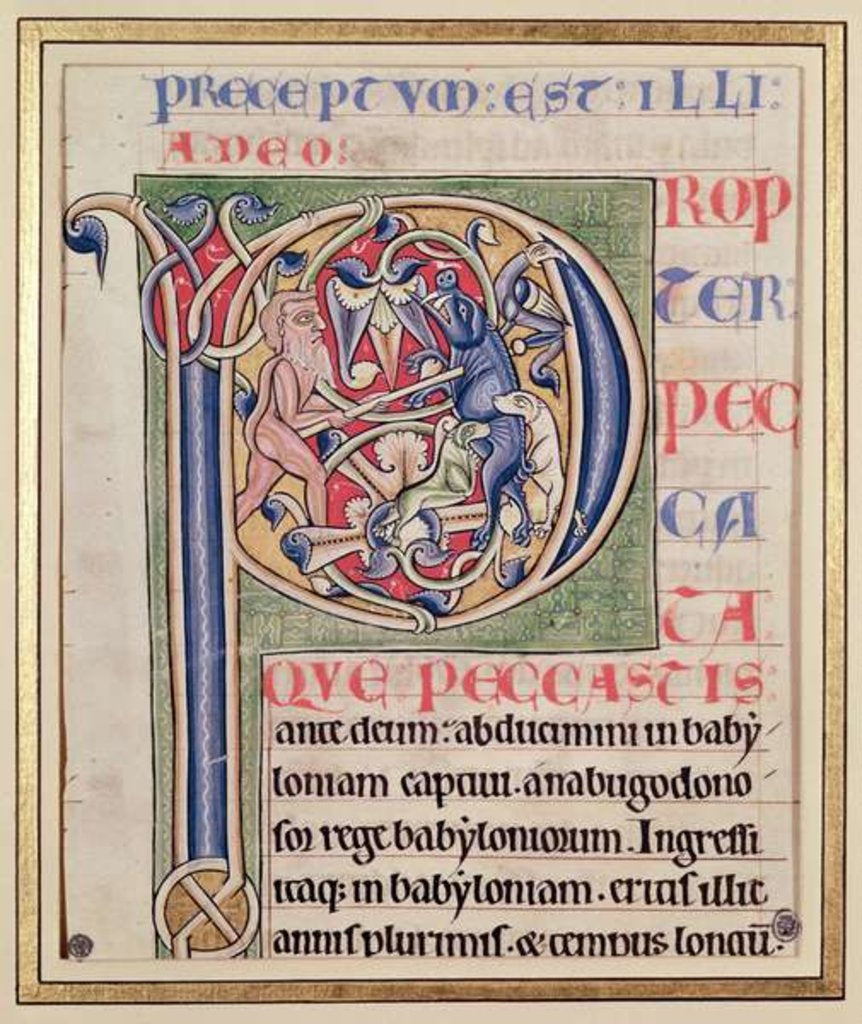 PRECEPTVM: EST: ILLI:
A. DEO:
P ROP
TER:
PEC
CA
TA.
QVE PECCASTIS:
ante deum: abducimini in baby
loniam captiui. anabugodono
sor rege babyloniorum. Ingressi
itaq; in babyloniam. eritis illic
annis plurimis. & tempus longū.